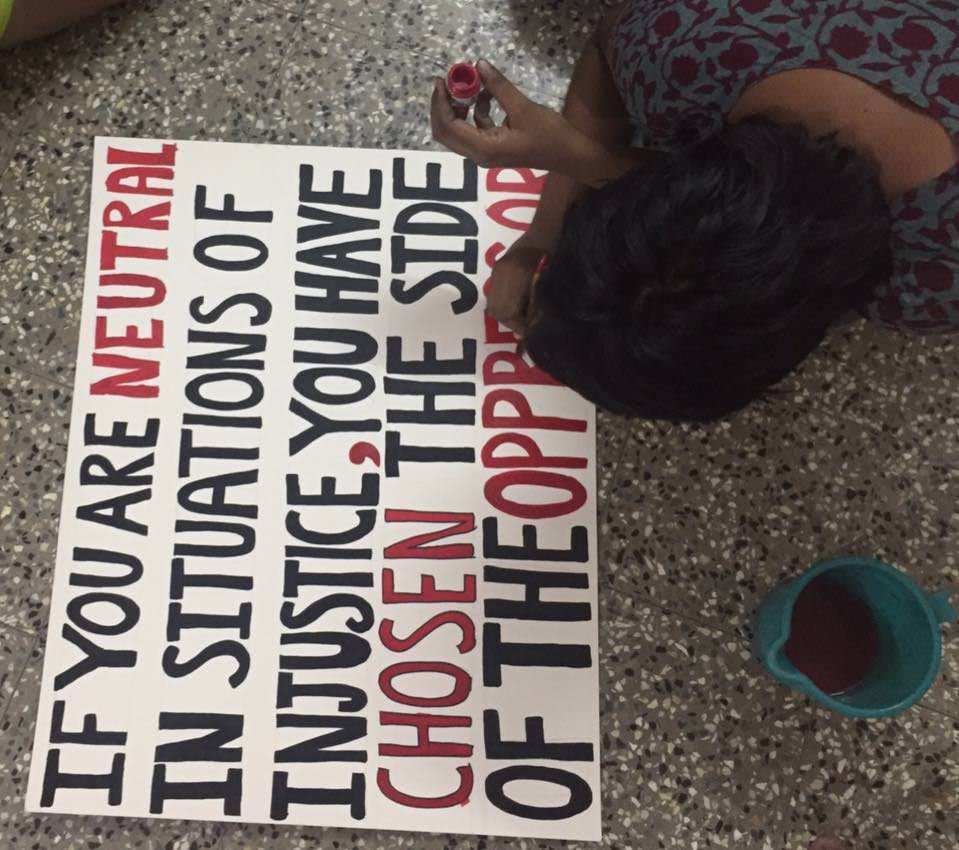 IF YOU ARE NEUTRAL
IN SITUATIONS OF
INJUSTICE, YOU HAVE
CHOSEN THE SIDE
OF THE OPPRESSOR